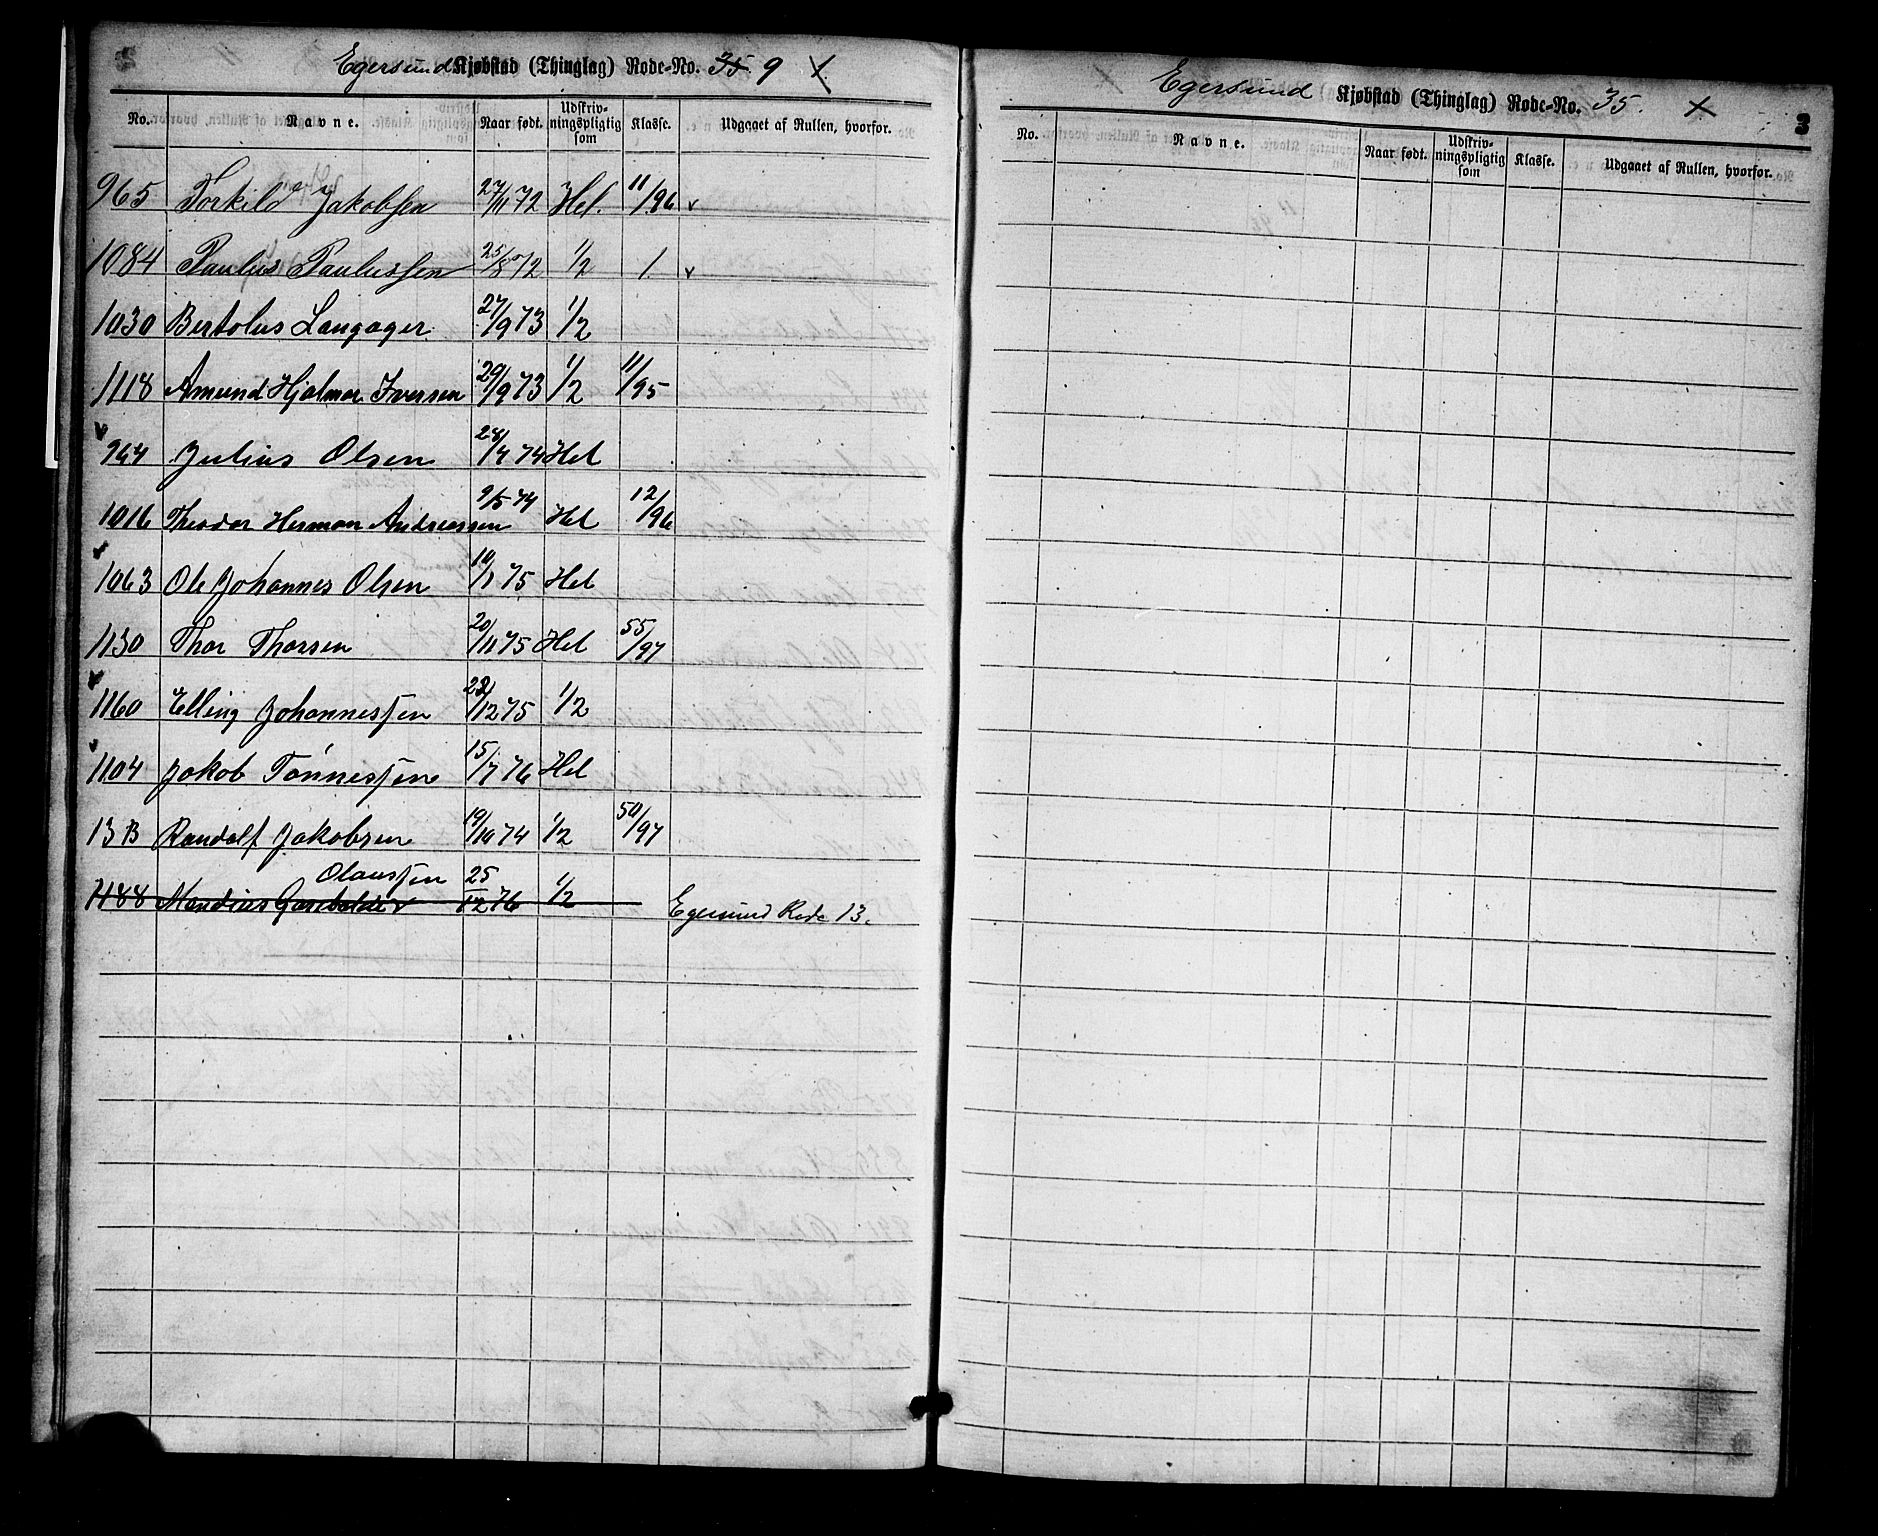 Egersund Kjøbstad (Thinglag) Rode-No. 35. 9 X
No. Navne. Naar født. Udskriv-ningspligtig som Klasse. Udgaaet af Rullen, hvorfor.
965 Torkild Jakobsen 27/11 72 Hel. 11/96 v
1084 Paulus Paulussen 25/8 72 1/2 1 v
1030 Bertolus Langager. 27/9 73 1/2
1118 Amund Hjalmar Iversen 29/9 73 1/2 11/95
964 Julius Olsen 28/7 74 Hel
1016 Theodor Herman Andreassen 9/5 74 Hel 12/96
1063 Ole Johannes Olsen 10/1 75 Hel
1130 Thor Thorsen 20/11 75 Hel 55/97
1160 Elling Johannessen 22/12 75 1/2
1104 Jakob Tønnessen 15/7 76 Hel
13 B Randolf Jakobsen 19/10 74 1/2 50/97
Olaussen
1188 Mandius Garibaldi 25/12 76 1/2 Egersund Rode 13.
Egersund Kjøbstad (Thinglag) Rode-No. 35. X
3
No. Navne. Naar født. Udskriv-ningspligtig som Klasse. Udgaaet af Rullen, hvorfor.